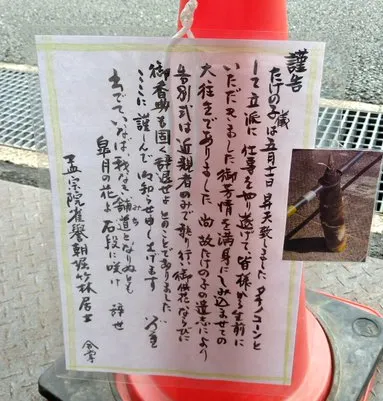 謹告
たけの子蔵は五月十一日 昇天致しました タケノコーンと
して立派に 仕事をやり遂げて 皆様から 生前に
いただきました 御芳情を満身にしみ込ませての
大往生でありました 尚 故たけの子の遺志により
告別式は近親者のみで執り行い 御供花ならびに
御香典も固く辞退せよ とのことでありました
ここに 謹んで 御知らせ申し上げます
出でていなば 主なき舗道となりぬとも
みち
皐月の花よ 石段に咲け 辞世
孟宗院雀誉朝掘竹林居士 合掌